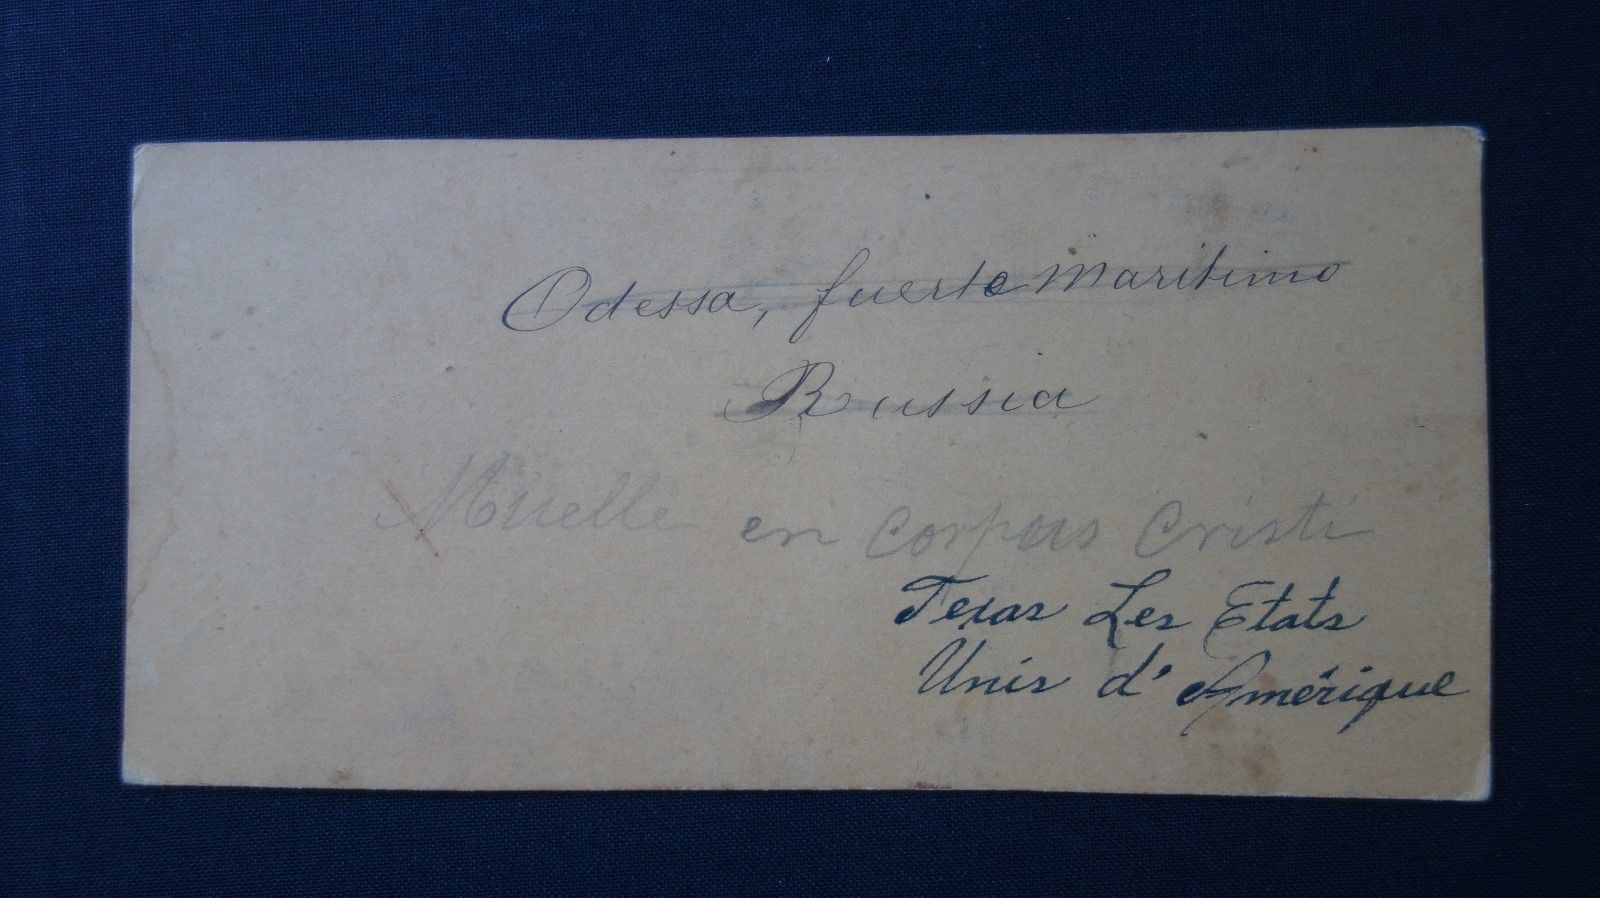 Odessa, fuerte Maritimo
Russia
Muelle en Corpus Cristi
Texas Les Etats
Unis d'Amérique